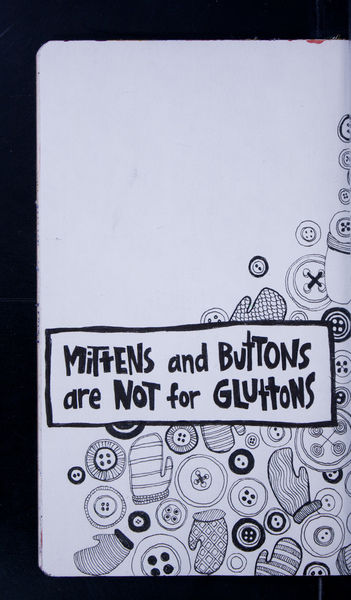 MiTTENS and BUTTONS
are NOT for GLUTTONS